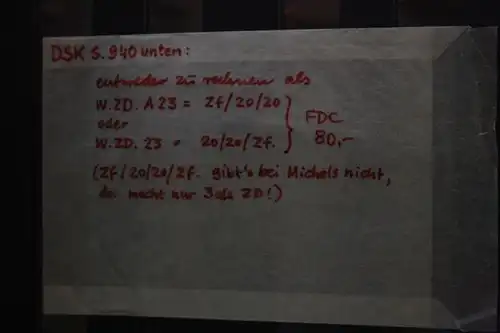 DSK S. 940 unten:
entweder zu rechnen als
W.ZD. A23 = Zf/20/20
oder
W.ZD. 23 = 20/20/Zf.
FDC
80,-
(Zf/20/20/Zf. gibt's bei Michels nicht,
da macht nur 3als ZD!)